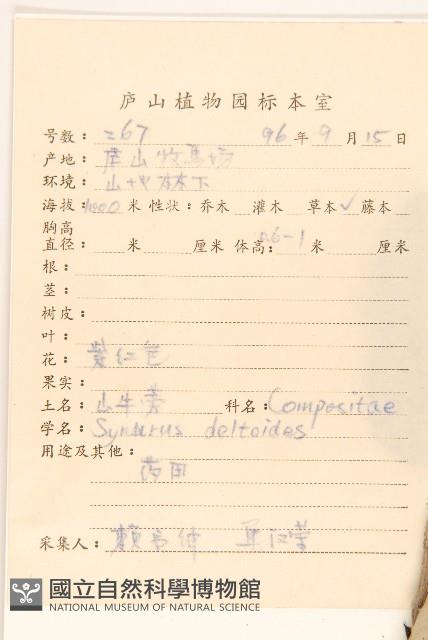 庐山植物园标本室
号数: 267 96年9月15日
产地: 庐山牧馬场
环境: 山地林下
海拔: 1000米 性状: 乔木 灌木 草本✓ 藤本
胸高
直径: 米 厘米 体高: 0.6-1 米 厘米
根:
茎:
树皮:
叶:
花: 紫红色
果实:
土名: 山牛蒡 科名: Compositae
学名: Synurus deltoides
用途及其他:
药用
采集人: 赖书绅
國立自然科學博物館
NATIONAL MUSEUM OF NATURAL SCIENCE